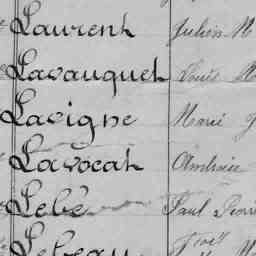 Laurent Julien M
Lavauquet Louis M
Lavigne Marie J
Lavocat Ambroise
Lebé Paul Pierre
Lebeau Noël